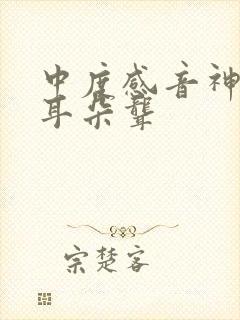 中度感音神
耳朵聋
宗楚客